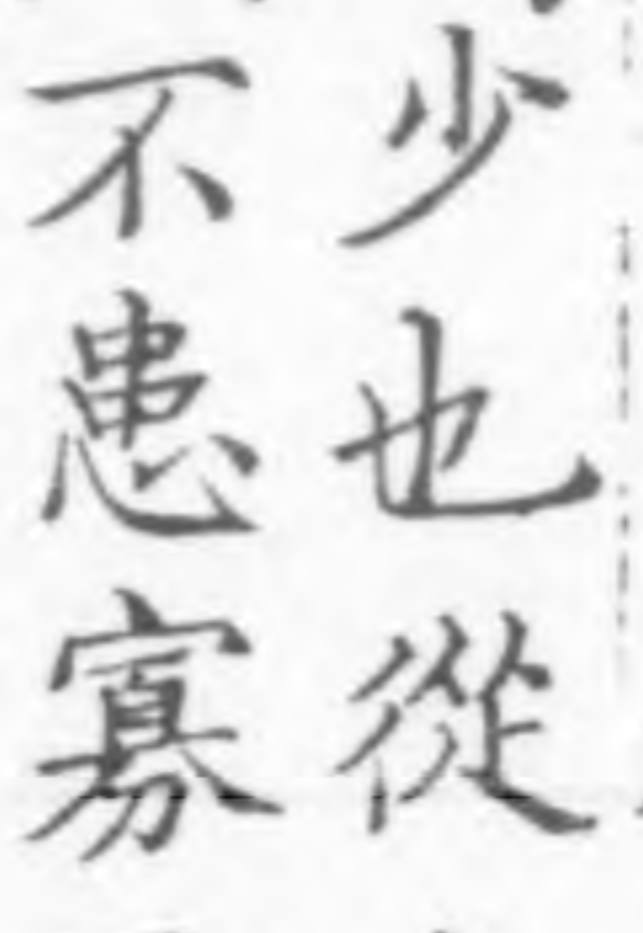 少也從
不患寡